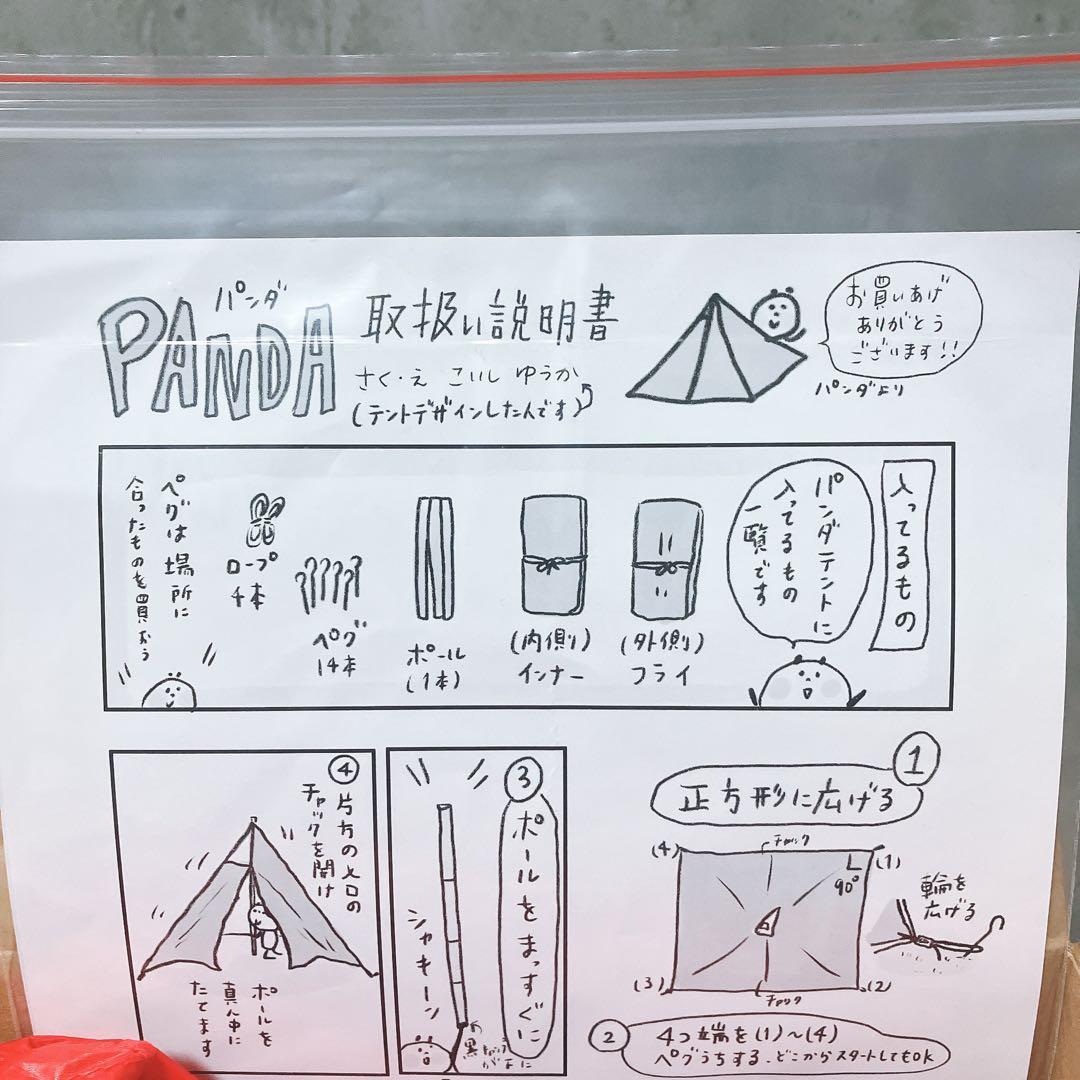 パンダ
PANDA 取扱い説明書
さく・え こいし ゆうか
(テントデザインした人です)
お買いあげ
ありがとう
ございます!!
パンダより
入ってるもの
パンダテントに
入ってるもの
一覧です
(外側)
フライ
(内側)
インナー
ポール
(1本)
ペグ
14本
ロープ
4本
ペグは場所に
合ったものを買おう
1
正方形に広げる
(4)
チャック
(1)
90°
(3)
チャック
(2)
輪を
広げる
2
4つ端を(1)~(4)
ペグうちする、どこからスタートしてもOK
3
ポールをまっすぐに
シャキーン
4
片方の入口の
チャックを開け
ポールを
真ん中に
たてます